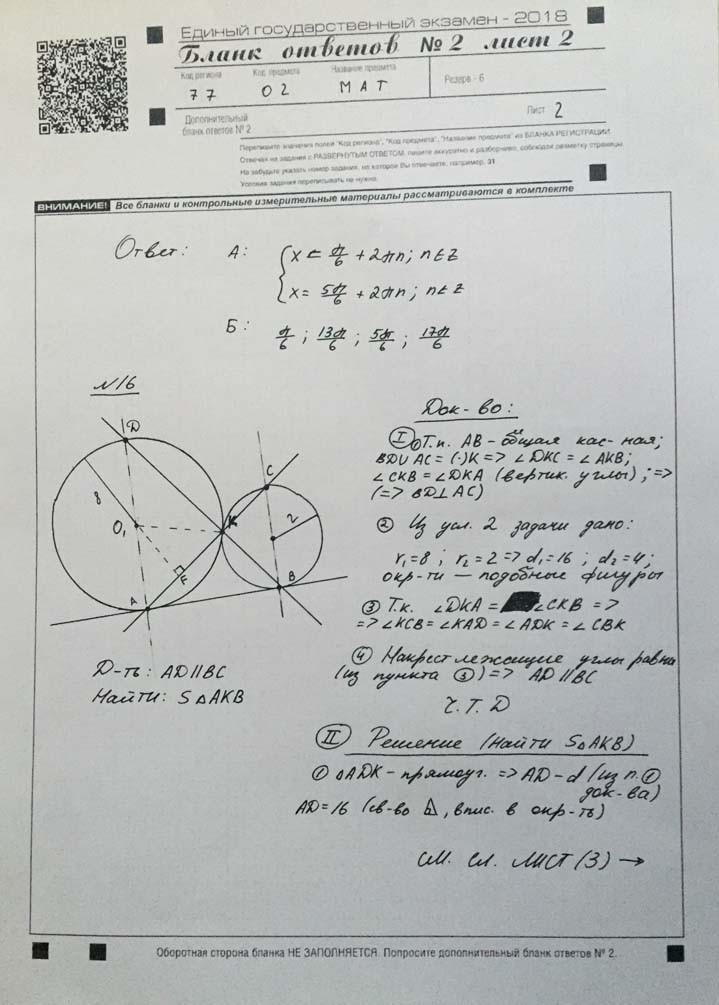 Единый государственный экзамен - 2018
Бланк ответов № 2 лист 2
Код региона
Код предмета
Название предмета
Резерв - 6
77
02
МАТ
Дополнительный
бланк ответов № 2
Лист 2
Перепишите значения полей "Код региона", "Код предмета", "Название предмета" из БЛАНКА РЕГИСТРАЦИИ.
Отвечая на задания с РАЗВЕРНУТЫМ ОТВЕТОМ, пишите аккуратно и разборчиво, соблюдая разметку страницы.
Не забудьте указать номер задания, на которое Вы отвечаете, например, 31
Условия задания переписывать не нужно.
ВНИМАНИЕ! Все бланки и контрольные измерительные материалы рассматриваются в комплекте
Ответ: А: { x = π/6 + 2πn; n∈Z
x = 5π/6 + 2πn; n∈Z
Б: π/6 ; 13π/6 ; 5π/6 ; 17π/6
№16
D
8
O₁
K
C
2
F
A
B
Д-ть: AD||BC
Найти: S△AKB
Док-во:
I ① Т.к. AB - общая кас-ная;
BD∪AC = (·)K => ∠DKC = ∠AKB;
∠CKB = ∠DKA (вертик. углы) ; =>
(=> BD⊥AC)
② Из усл. 2 задачи дано:
r₁=8 ; r₂=2 => d₁=16 ; d₂=4;
окр-ти — подобные фигуры
③ Т.к. ∠DKA = ∠CKB =>
=> ∠KCB = ∠KAD = ∠ADK = ∠CBK
④ Накрест лежащие углы равны
(из пункта ③) => AD||BC
Ч.Т.Д
II Решение (Найти S△AKB)
① △ADK - прямоуг. => AD - d (из п. ①
док-ва)
AD=16 (св-во ◺, впис. в окр-ть)
см. сл. ЛИСТ (3) →
Оборотная сторона бланка НЕ ЗАПОЛНЯЕТСЯ. Попросите дополнительный бланк ответов № 2.